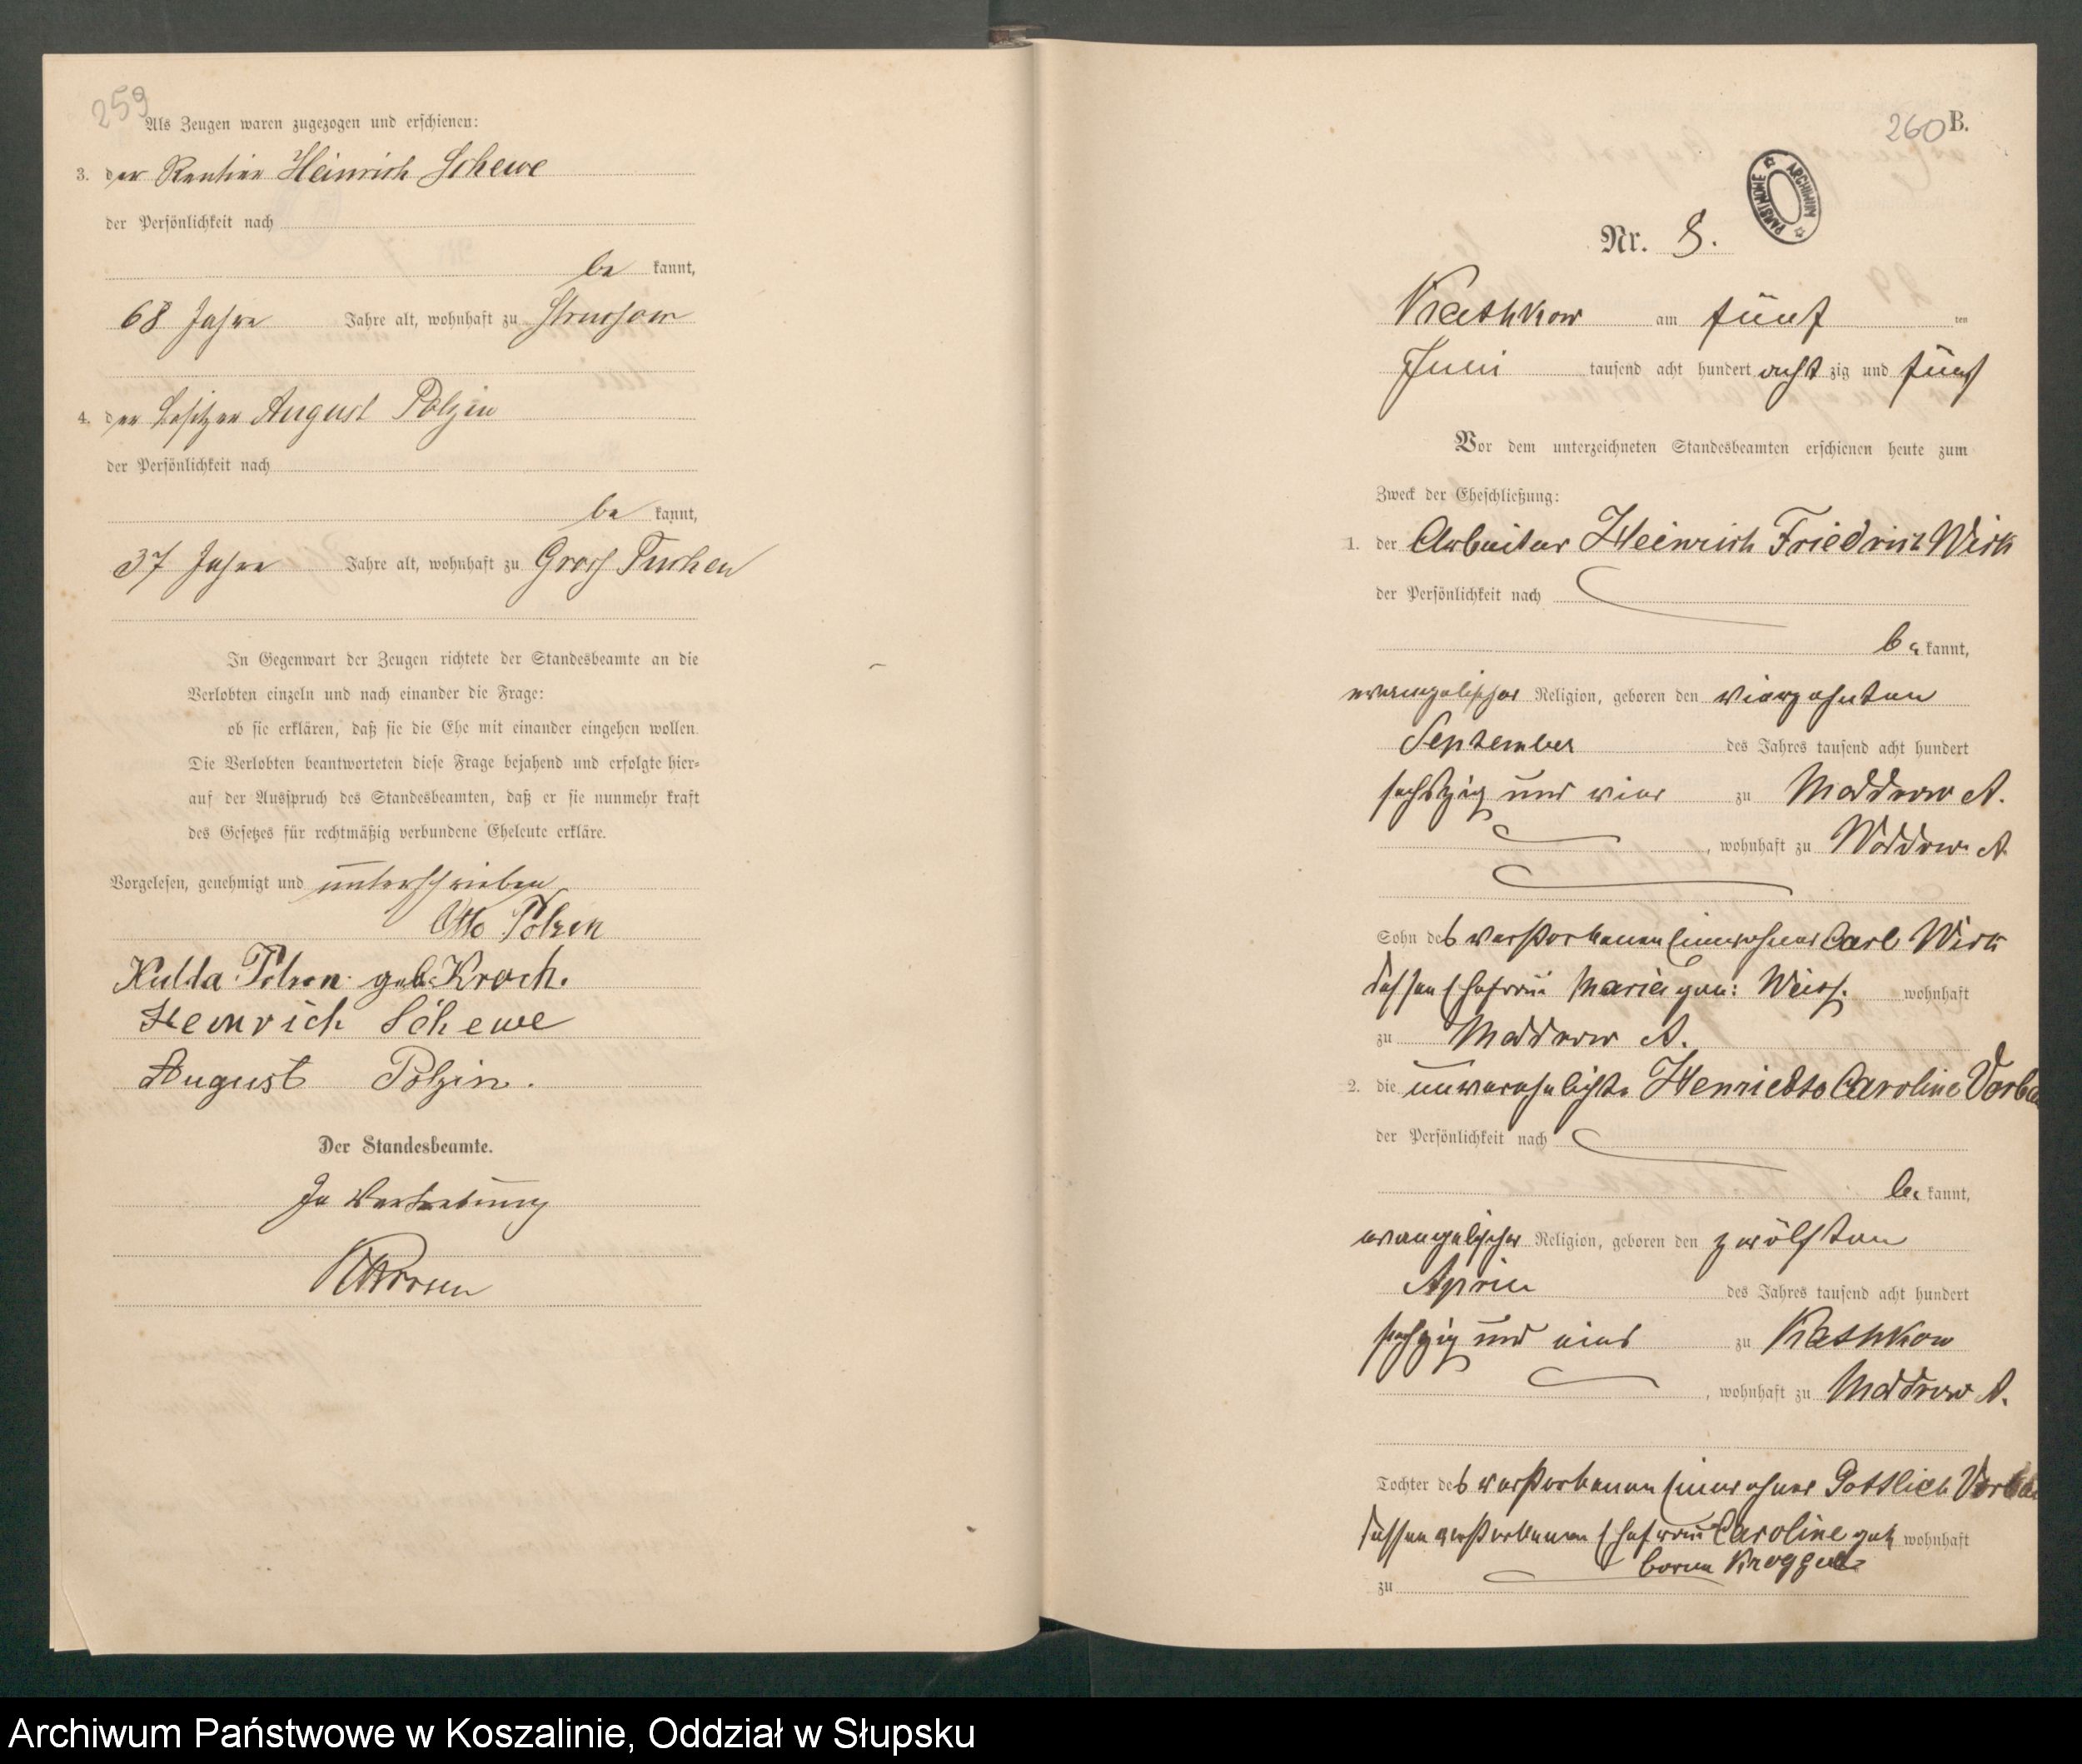 259
Als Zeugen waren zugezogen und erschienen:
3. der Rentier Heinrich Schewe
der Persönlichkeit nach
be kannt,
68 Jahre Jahre alt, wohnhaft zu Strussow
4. der Besitzer August Polzin
der Persönlichkeit nach
be kannt,
37 Jahre Jahre alt, wohnhaft zu Gross Tuchen
In Gegenwart der Zeugen richtete der Standesbeamte an die
Verlobten einzeln und nach einander die Frage:
ob sie erklären, daß sie die Ehe mit einander eingehen wollen.
Die Verlobten beantworteten diese Frage bejahend und erfolgte hier-
auf der Ausspruch des Standesbeamten, daß er sie nunmehr kraft
des Gesetzes für rechtmäßig verbundene Eheleute erkläre.
Vorgelesen, genehmigt und unterschrieben
Otto Polzin
Hulda Polzin geb. Kroch.
Heinrich Schewe
August Polzin.
Der Standesbeamte.
In Vertretung
260 B.
ARCHIWUM PAŃSTWOWE
Nr. 8.
Kathkow am fünf ten
Juni tausend acht hundert acht zig und fünf
Vor dem unterzeichneten Standesbeamten erschienen heute zum
Zweck der Eheschließung:
1. der Arbeiter Heinrich Friedrich Wirk
der Persönlichkeit nach
be kannt,
evangelischer Religion, geboren den vierzehnten
September des Jahres tausend acht hundert
sechszig und vier zu Moddrow A.
, wohnhaft zu Moddrow A
Sohn des verstorbenen Einwohner Carl Wirk
dessen Ehefrau Marie geb: Weiss. wohnhaft
zu Moddrow A.
2. die unverehelichte Henriette Caroline
der Persönlichkeit nach
be kannt,
evangelischer Religion, geboren den zwölften
April des Jahres tausend acht hundert
sechzig und eins zu Kathkow
, wohnhaft zu Moddrow A.
Tochter des verstorbenen Einwohner Gottlieb
dessen verstorbenen Ehefrau Caroline ge wohnhaft
borne Kroggel
zu
Archiwum Państwowe w Koszalinie, Oddział w Słupsku